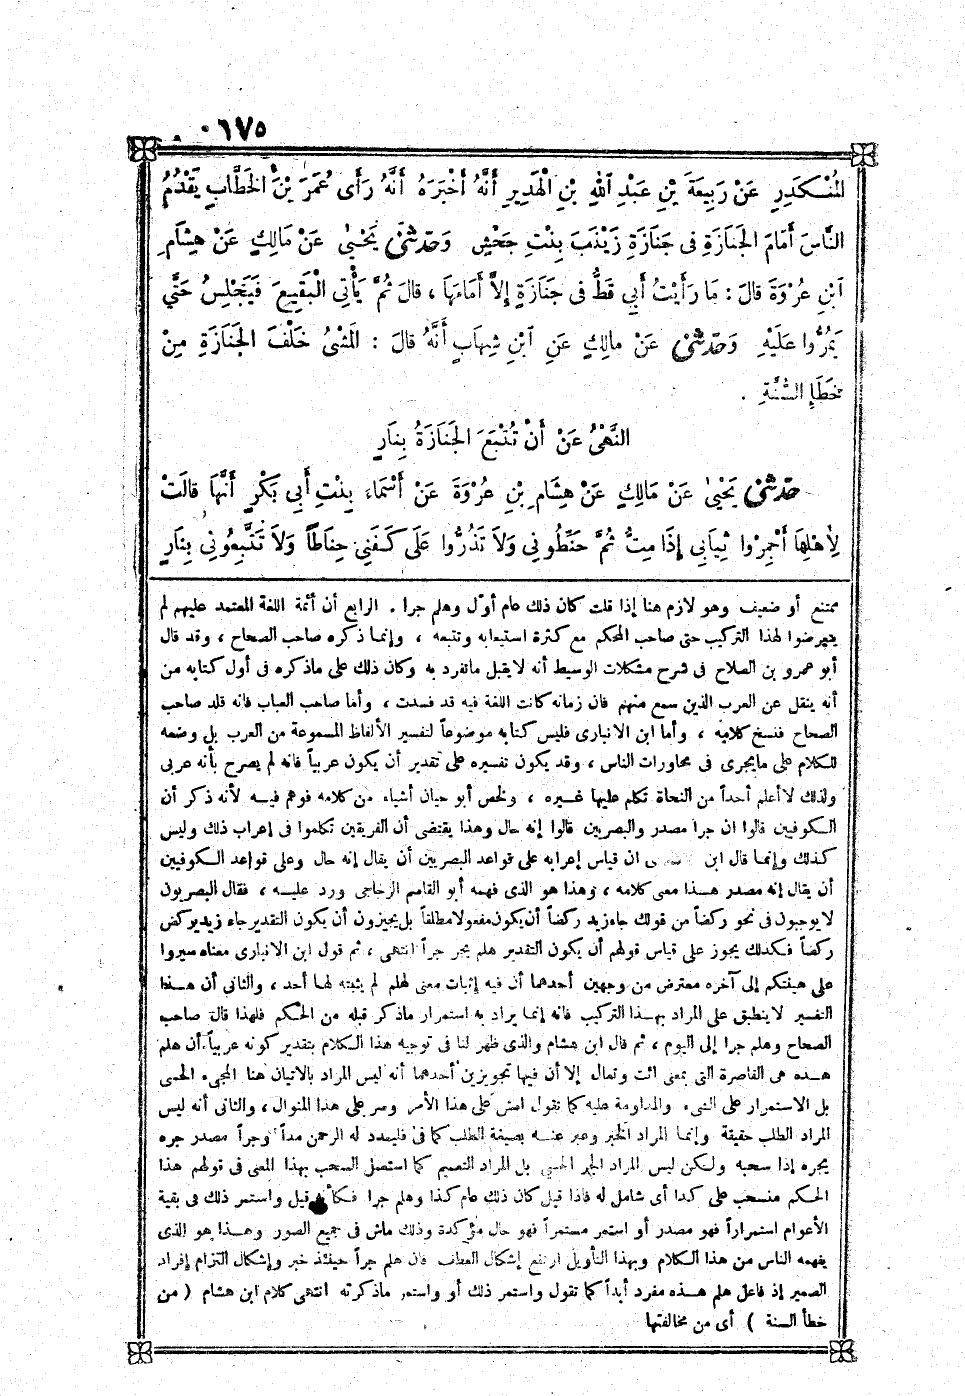 ٦٧٥
الْمُنْكَدِرِ عَنْ رَبِيعَةَ بْنِ عَبْدِ اللهِ بْنِ الْهَدِيرِ أَنَّهُ أَخْبَرَهُ أَنَّهُ رَأَى عُمَرَ بْنَ الْخَطَّابِ يَقْدُمُ
النَّاسَ أَمَامَ الْجَنَازَةِ فِى جَنَازَةِ زَيْنَبَ بِنْتِ جَحْشٍ وَحَدَّثَنِي يَحْيَى عَنْ مَالِكٍ عَنْ هِشَامِ
ابْنِ عُرْوَةَ قَالَ : مَا رَأَيْتُ أَبِي قَطُّ فِى جَنَازَةٍ إِلاَّ أَمَامَهَا ، قَالَ ثُمَّ يَأْتِى الْبَقِيعَ فَيَجْلِسُ حَتَّى
يَمُرُّوا عَلَيْهِ وَحَدَّثَنِي عَنْ مَالِكٍ عَنِ ابْنِ شِهَابٍ أَنَّهُ قَالَ : الْمَشْىُ خَلْفَ الْجَنَازَةِ مِنْ
خَطَإِ السُّنَّةِ .
النَّهْىُ عَنْ أَنْ تُتْبَعَ الْجَنَازَةُ بِنَارٍ
حَدَّثَنِي يَحْيَى عَنْ مَالِكٍ عَنْ هِشَامِ بْنِ عُرْوَةَ عَنْ أَسْمَاءَ بِنْتِ أَبِي بَكْرٍ أَنَّهَا قَالَتْ
لِأَهْلِهَا أَجْمِرُوا ثِيَابِى إِذَا مِتُّ ثُمَّ حَنِّطُونِى وَلاَ تَذُرُّوا عَلَى كَفَنِي حِنَاطًا وَلاَ تَتَّبِعُونِى بِنَارٍ
ممتنع أو ضعيف وهو لازم هنا إذا قلت كان ذلك عام أوّل وهلم جرا . الرابع أن أئمة اللغة المعتمد عليهم لم
يتعرضوا لهذا التركيب حتى صاحب المحكم مع كثرة استيعابه وتتبعه ، وإنما ذكره صاحب الصحاح ، وقد قال
أبو عمرو بن الصلاح فى شرح مشكلات الوسيط أنه لا يقبل ماتفرد به وكان ذلك على ماذكره فى أول كتابه من
أنه ينقل عن العرب الذين سمع منهم فان زمانه كانت اللغة فيه قد فسدت ، وأما صاحب العباب فانه قلد صاحب
الصحاح فنسخ كلامه ، وأما ابن الانبارى فليس كتابه موضوعاً لتفسير الألفاظ المسموعة من العرب بل وضعه
للكلام على مايجرى فى محاورات الناس ، وقد يكون تفسيره على تقدير أن يكون عربياً فانه لم يصرح بأنه عربى
ولذلك لا أعلم أحداً من النحاة تكلم عليها غيره ، ولخص أبو حيان أشياء من كلامه فوهم فيه لأنه ذكر أن
الكوفيين قالوا ان جرا مصدر والبصريين قالوا إنه حال وهذا يقتضى أن الفريقين تكلموا فى إعراب ذلك وليس
كذلك وإنما قال ابن ان قياس إعرابه على قواعد البصريين أن يقال إنه حال وعلى قواعد الكوفيين
أن يقال إنه مصدر هذا معنى كلامه ، وهذا هو الذى فهمه أبو القاسم الزجاجى ورد عليه ، فقال البصريون
لا يوجبون فى نحو ركضاً من قولك جاء زيد ركضاً أن يكون مفعولا مطلقاً بل يجيزون أن يكون التقدير جاء زيد يركض
ركضاً فكذلك يجوز على قياس قولهم أن يكون التقدير هلم يجر جراً انتهى ، ثم قول ابن الانبارى معناه سيروا
على هينتكم إلى آخره معترض من وجهين أحدهما أن فيه إثبات معنى لهلم لم يثبته لها أحد ، والثانى أن هذا
التفسير لا ينطبق على المراد بهذا التركيب فانه إنما يراد به استمرار ماذكر قبله من الحكم فلهذا قال صاحب
الصحاح وهلم جرا إلى اليوم ، ثم قال ابن هشام والذى ظهر لنا فى توجيه هذا الكلام بتقدير كونه عربياً أن هلم
هذه هى القاصرة التى بمعنى ائت وتعال إلا أن فيها تجويزين أحدهما أنه ليس المراد بالاتيان هنا المجىء الحسى
بل الاستمرار على الشىء والمداومة عليه كما تقول امش على هذا الأمر وسر على هذا المنوال ، والثانى أنه ليس
المراد الطلب حقيقة وإنما المراد الخبر وعبر عنه بصيغة الطلب كما فى فليمدد له الرحمن مداً وجراً مصدر جره
يجره إذا سحبه ولكن ليس المراد الجر الحسى بل المراد التعميم كما استعمل السحب بهذا المعنى فى قولهم هذا
الحكم منسحب على كذا أى شامل له فاذا قيل كان ذلك عام كذا وهلم جرا فكأنه قيل واستمر ذلك فى بقية
الأعوام استمراراً فهو مصدر أو استمر مستمراً فهو حال مؤكدة وذلك ماش فى جميع الصور وهذا هو الذى
يفهمه الناس من هذا الكلام وبهذا التأويل ارتفع إشكال العطف فان هلم جراً حينئذ خبر وإشكال التزام إفراد
الضمير إذ فاعل هلم هذه مفرد أبداً كما تقول واستمر ذلك أو واستمر ماذكرته انتهى كلام ابن هشام ( من
خطأ السنة ) أى من مخالفتها